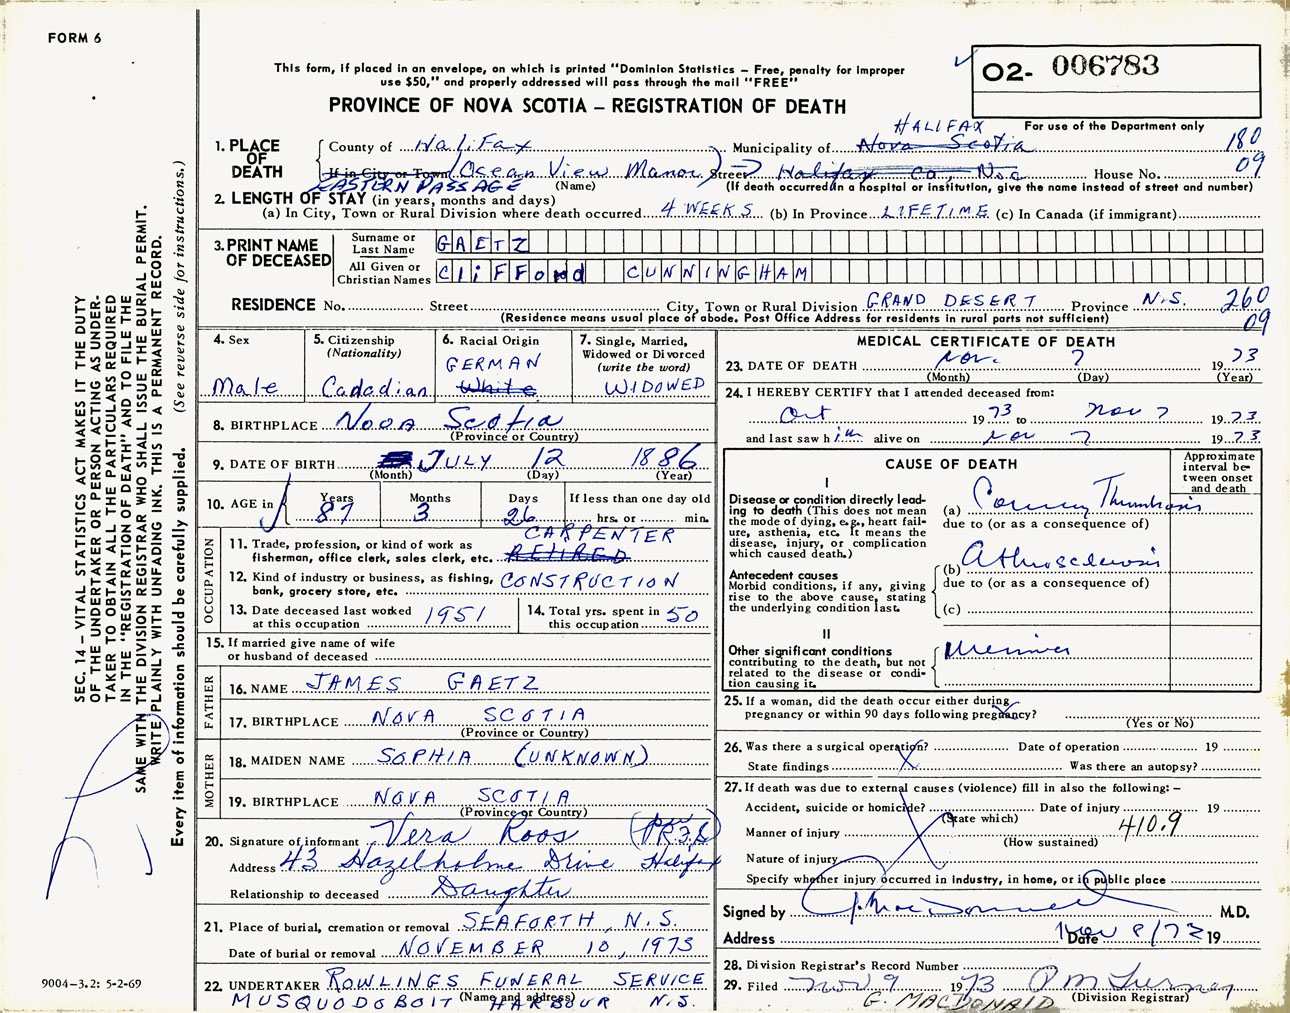 FORM 6
This form, if placed in an envelope, on which is printed "Dominion Statistics – Free, penalty for improper
use $50," and properly addressed will pass through the mail "FREE"
O2- 006783
PROVINCE OF NOVA SCOTIA – REGISTRATION OF DEATH
For use of the Department only
HALIFAX
1. PLACE OF DEATH County of Halifax Municipality of Nova Scotia 180
If in City or Town Ocean View Manor Street Halifax Co, N.S. House No. 09
EASTERN PASSAGE (Name) (If death occurred in a hospital or institution, give the name instead of street and number)
2. LENGTH OF STAY (in years, months and days)
(a) In City, Town or Rural Division where death occurred 4 WEEKS (b) In Province LIFETIME (c) In Canada (if immigrant)
3. PRINT NAME OF DECEASED
Surname or Last Name GAETZ
All Given or Christian Names CliFFord CUNNINGHAM
RESIDENCE No. Street City, Town or Rural Division GRAND DESERT Province N.S. 260
(Residence means usual place of abode. Post Office Address for residents in rural parts not sufficient) 09
4. Sex
Male
5. Citizenship
(Nationality)
Cadadian
6. Racial Origin
GERMAN
White
7. Single, Married,
Widowed or Divorced
(write the word)
WIDOWED
8. BIRTHPLACE Nova Scotia
(Province or Country)
9. DATE OF BIRTH JULY 12 1886
(Month) (Day) (Year)
10. AGE in Years Months Days If less than one day old
87 3 26 hrs. or min.
OCCUPATION
CARPENTER
11. Trade, profession, or kind of work as
fisherman, office clerk, sales clerk, etc. RETIRED
12. Kind of industry or business, as fishing,
bank, grocery store, etc. CONSTRUCTION
13. Date deceased last worked
at this occupation 1951
14. Total yrs. spent in
this occupation 50
15. If married give name of wife
or husband of deceased
FATHER
16. NAME JAMES GAETZ
17. BIRTHPLACE NOVA SCOTIA
(Province or Country)
MOTHER
18. MAIDEN NAME SOPHIA (UNKNOWN)
19. BIRTHPLACE NOVA SCOTIA
(Province or Country)
20. Signature of informant Vera Roos
Address 43 Hazelholme Drive Halifax
Relationship to deceased Daughter
21. Place of burial, cremation or removal SEAFORTH, N.S.
Date of burial or removal NOVEMBER 10, 1973
22. UNDERTAKER ROWLINGS FUNERAL SERVICE
(Name and address)
MUSQUODOBOIT HARBOUR N.S.
MEDICAL CERTIFICATE OF DEATH
23. DATE OF DEATH Nov. 7 1973
(Month) (Day) (Year)
24. I HEREBY CERTIFY that I attended deceased from:
Oct 1973 to Nov 7 1973
and last saw him alive on Nov 7 1973
CAUSE OF DEATH
Approximate
interval be-
tween onset
and death
I
Disease or condition directly lead-
ing to death (This does not mean
the mode of dying, e.g., heart fail-
ure, asthenia, etc. It means the
disease, injury, or complication
which caused death.)
(a) Coronary Thrombosis
due to (or as a consequence of)
Antecedent causes
Morbid conditions, if any, giving
rise to the above cause, stating
the underlying condition last.
(b) Atherosclerosis
due to (or as a consequence of)
(c)
II
Other significant conditions
contributing to the death, but not
related to the disease or condi-
tion causing it.
25. If a woman, did the death occur either during
pregnancy or within 90 days following pregnancy?
(Yes or No)
26. Was there a surgical operation? Date of operation 19
State findings Was there an autopsy?
27. If death was due to external causes (violence) fill in also the following: –
Accident, suicide or homicide? Date of injury 19
(State which)
Manner of injury 410.9
(How sustained)
Nature of injury
Specify whether injury occurred in industry, in home, or in public place
Signed by J. MacDonnell M.D.
Address Date Nov 8/73 19
28. Division Registrar's Record Number
29. Filed Nov 9 1973
(Division Registrar)
G. MACDONALD
SEC. 14 – VITAL STATISTICS ACT MAKES IT THE DUTY
OF THE UNDERTAKER OR PERSON ACTING AS UNDER-
TAKER TO OBTAIN ALL THE PARTICULARS REQUIRED
IN THE "REGISTRATION OF DEATH" AND TO FILE THE
SAME WITH THE DIVISION REGISTRAR WHO SHALL ISSUE THE BURIAL PERMIT.
WRITE PLAINLY WITH UNFADING INK. THIS IS A PERMANENT RECORD.
Every item of information should be carefully supplied. (See reverse side for instructions.)
9004–3.2: 5-2-69